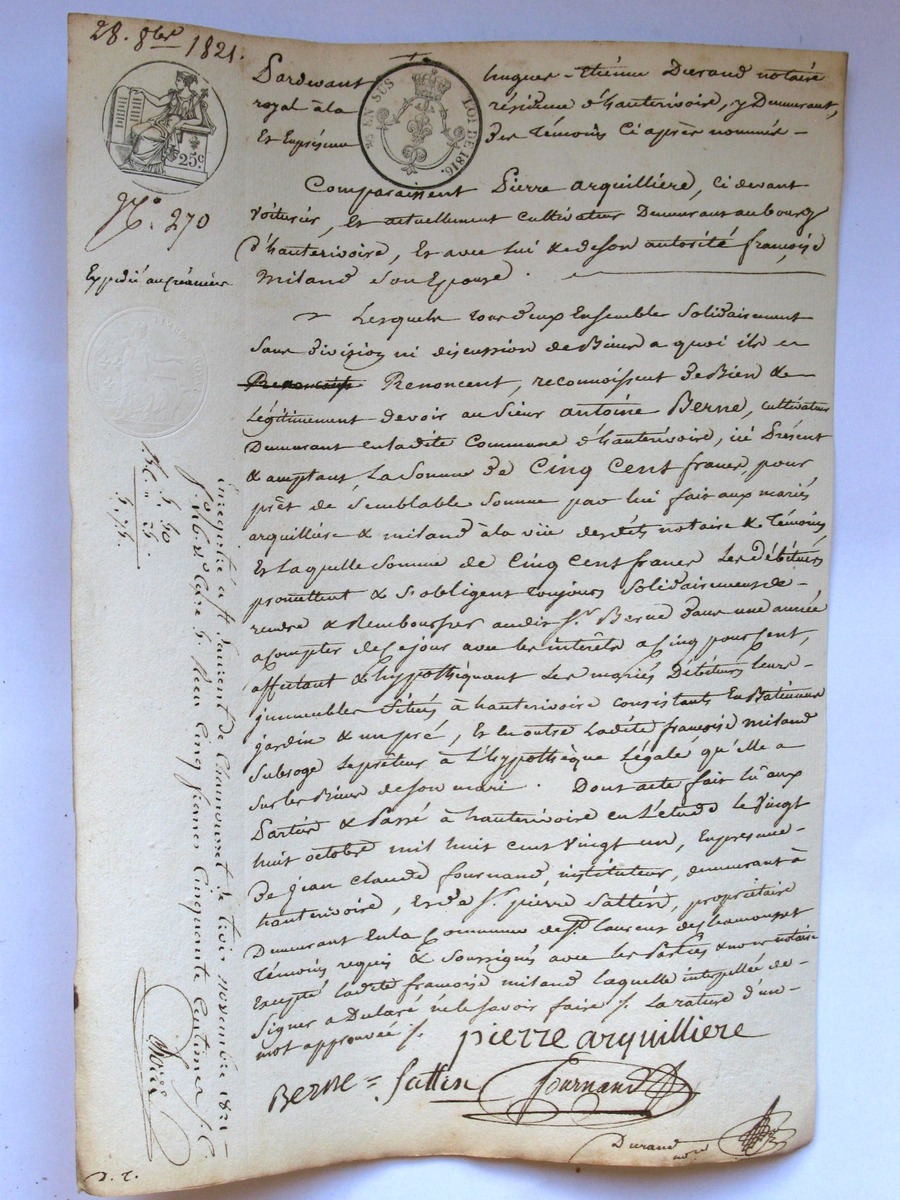 28. 8bre 1821.
25c
25 EN SUS LOI DE 1816.
No. 270
Expédié au créancier
Pardevant hugues-étienne Durand notaire
royal à la résidence d'hauterivoire, y Demeurant,
Et En présence des Témoins Ci après nommés -
Comparaissent Pierre arquilliere, ci devant
voiturier, Et actuellement cultivateur Demeurant au bourg
d'hauterivoire, Et avec lui & de son autorité françoise
Miland son Epouse.
Lesquels tous deux Ensemble Solidairement
Sans division ni discussion de Biens a quoi ils en
Renoncent, reconnoissent de Bien &
Légitimement devoir au Sieur antoine Berne, cultivateur
Demeurant en ladite Commune d'hauterivoire, ici Présent
& acceptant, La Somme de Cinq Cent francs, pour
prêt de Semblable Somme par lui fait aux mariés
arquilliere & miland à la vüe des dits notaire & Témoins
Et Laquelle Somme de Cinq Cent francs Les Débiteurs
promettent & S'obligent toujours Solidairement de
rendre & Rembourser audit Sr. Berne dans une année
a compter de Ce jour avec les intérêts a Cinq pour Cent,
affectant & hypothéquant Les mariés Débiteurs leurs
immeubles Situés à hauterivoire consistants En Batiments
jardin & un pré, Et en outre Ladite françoise miland
Subroge Le prêteur à L'hypothèque Légale qu'elle a
Sur les Biens de son mari. Dont acte fait lû aux
Parties & Passé à hauterivoire en L'étude le vingt
huit octobre mil huit cent vingt un, En présence
De jean Claude fournand, instituteur, demeurant à
hauterivoire, Et du Sr. pierre Sattin, propriétaire
Demeurant En la Commune de St. Laurent de Chamousset
Témoins requis & Soussignés avec les Parties & nous notaire
Excepté Ladite françoise miland Laquelle interpellée de
Signer a Déclaré ne le Savoir faire /. La rature d'un
mot approuvée /.
pierre arquilliere
Berne = Sattin fournand
Durand nore
Enregistré à St Laurent de Chamousset le trois novembre 1821
Reçu Cinq francs Cinquante Centimes
5. 50